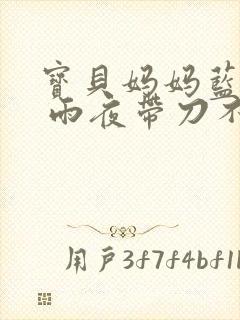 寶貝妈妈藍
雨夜帶刀不
用戶3f7f4bf1l